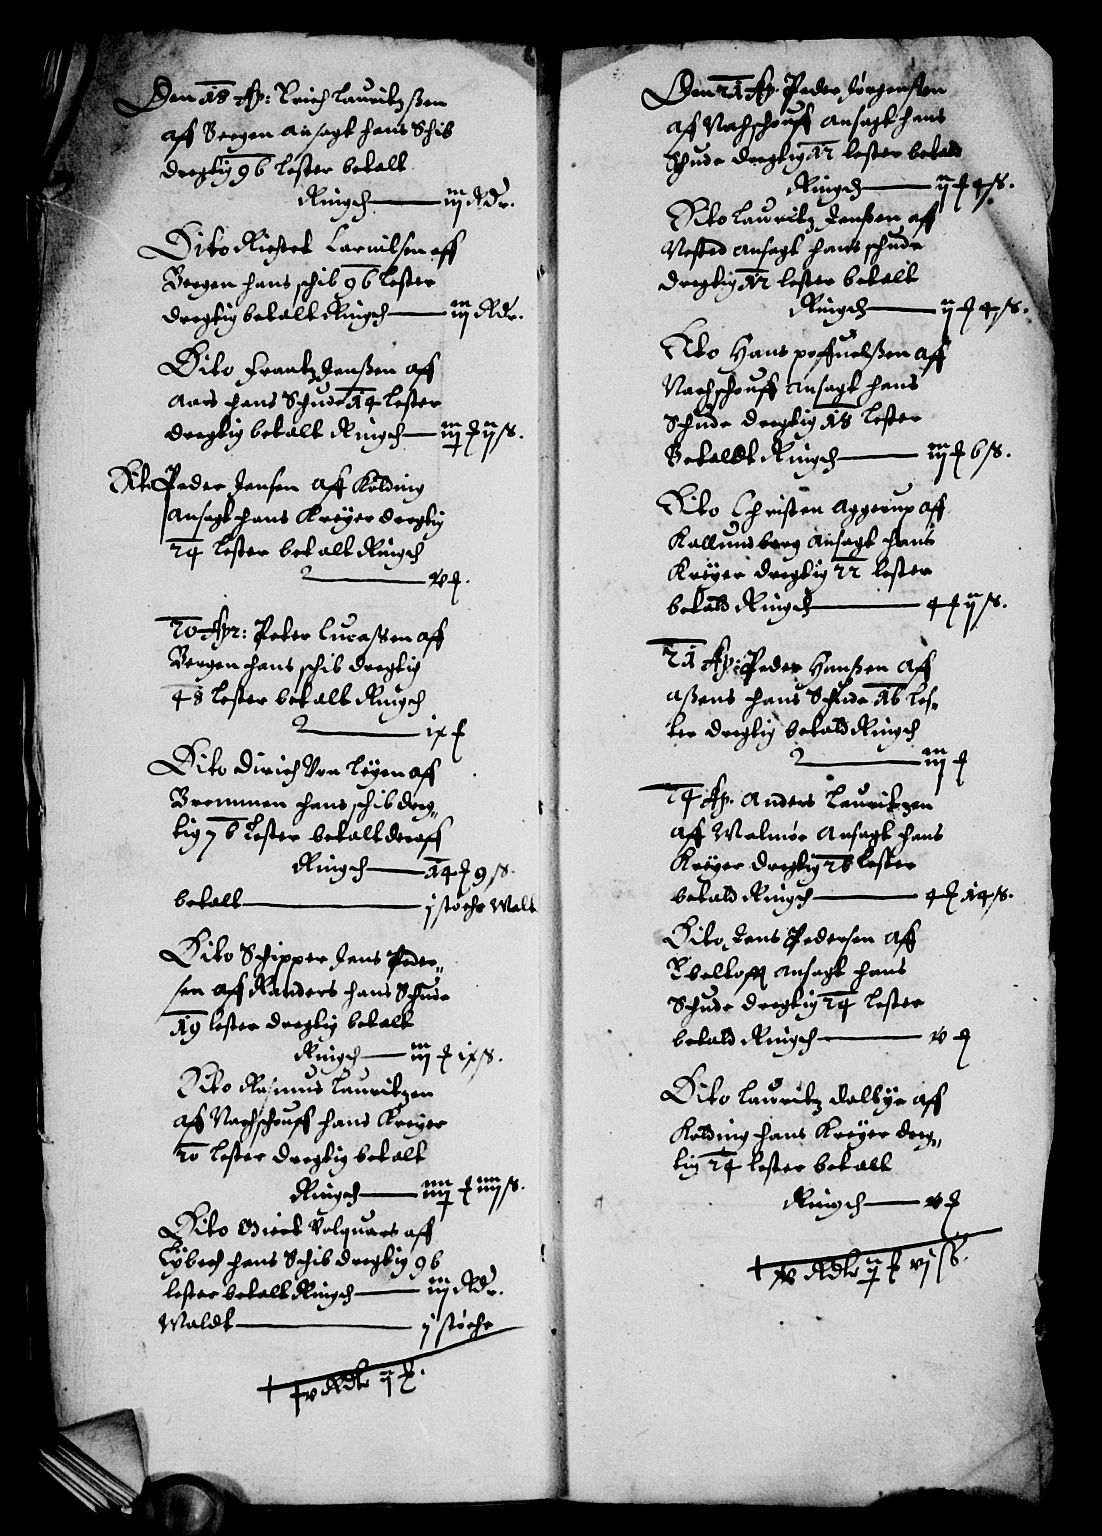 Den 18 Ap: Erich Lauritzßen
aff Bergen ansagt hans Schib
dregtig 96 Lester betalt
Ringsch iij Rdr.
Dito Richert Carnilsen aff
Bergen hans schib 96 Lester
dregtig betalt Ringsch iij Rdr.
Dito Frantz Jenßen aff
Aars hans Schude 14 Lester
dregtig betalt Ringsch ij ß.
Dito Peder Jensen aff Kolding
Ansagt hans Kreyer dregtig
24 Lester betalt Ringsch
v
20 Apr: Peter Lucaßen aff
Bergen hans schib dregtig
48 Lester betalt Ringsch
ix
Dito Dirich Von Leyen aff
Brommen hans schib dreg„
tig 76 Lester betalt deraff
Ringsch 14 9 ß.
betalt j støche Walt
Dito Schipper Jens Peder„
sen aff Randers hans Schude
19 Lester dregtig betalt
Ringsch iij ix ß.
Dito Rasmus Lauritzen
aff Nachschouff hans Kreyer
20 Lester dregtig betalt
Ringsch iiij iiij ß.
Dito Volquars aff
Lybech hans Schib dregtig 96
Lester betalt Ringsch iij Rdr.
Waldt j støche
Rdlr
Den 21 Ap. Peder Jørgensen
aff Nachschouff ansagt hans
Schude dregtig 12 Lester betald
Ringsch ij 4 ß.
Dito Lauritz Jenßen aff
Nested ansagt hans schude
dregtig 12 Lester betalt
Ringsch ij 4 ß.
Dito Hans poffuelßen aff
Nachschouff ansagt hans
Schude dregtig 18 Lester
Betaldt Ringsch iij 6 ß.
Dito Christen Aggerup aff
Kallundborg ansagt hans
Kreyer dregtig 22 Lester
betald Ringsch 4 ij ß.
21 Ap: Peder Hanßen aff
aßens hans Schude 16 Les„
ter dregtig betald Ringsch
iij
24 Ap. Anders Lauritzen
aff Malmøe Ansagt hans
Kreyer dregtig 26 Lester
betald Ringsch 4 14 ß.
Dito Jens Pedersen aff
Ebeltofft ansagt hans
Schude dregtig 24 Lester
betald Ringsch v
Dito Lauritz Dalbye aff
Kolding hans Kreyer dreg„
tig 24 Lester betalt
Ringsch v
Rdlr vj ß.